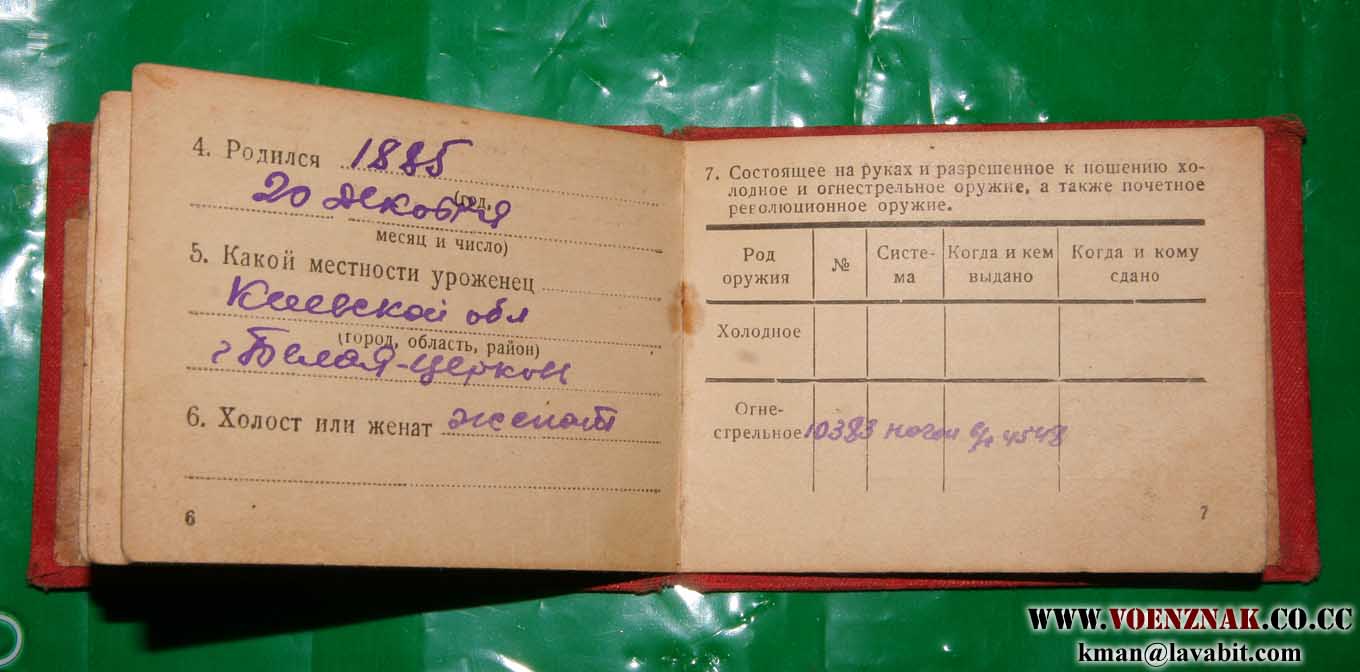 4. Родился 1885
(год,
20 декабря
месяц и число)
5. Какой местности уроженец
Киевской обл
(город, область, район)
г Белая-Церковь
6. Холост или женат женат
6
7. Состоящее на руках и разрешенное к ношению хо-
лодное и огнестрельное оружие, а также почетное
революционное оружие.
Род оружия | № | Систе-ма | Когда и кем выдано | Когда и кому сдано
Холодное
Огне-
стрельное 10383 наган в/ч 4548
7
WWW.VOENZNAK.CO.CC
kman@lavabit.com